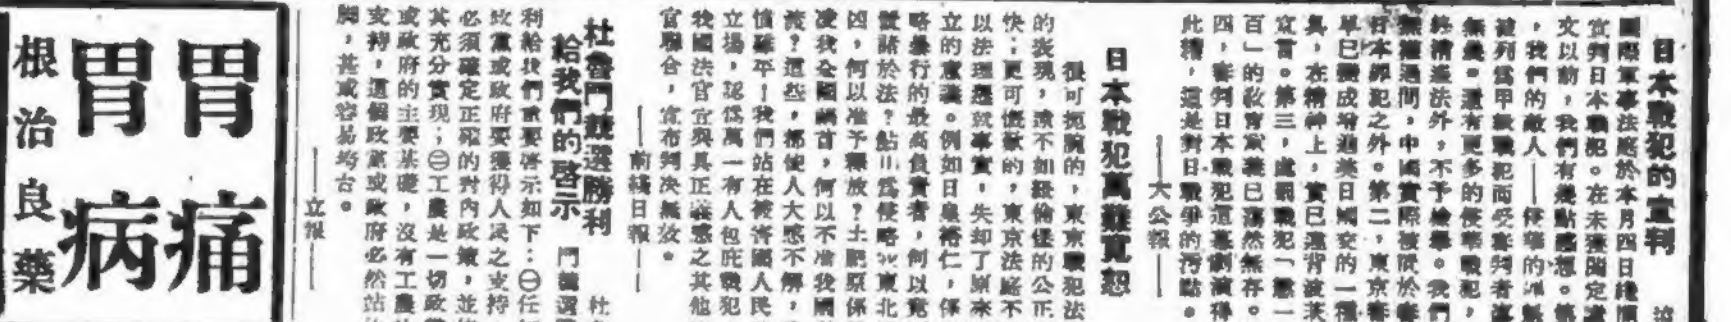 日本戰犯的宣判
國際軍事法庭於本月四日繼續
宣判日本戰犯。在未
文以前,我們有幾點感想。第
,我們的敵人
被列爲甲級戰犯而受審判者
無幾。還有更多的侵華戰犯,
終逍遙法外,不予檢舉。我們
無
日本罪犯之外。第二,東京審
早已變成增進美日國交的一種
具,在精神上,實已違背波茨
宣言。第三,處罰戰犯「懲一
百」的敎育意義已蕩然無存。
四,審判日本戰犯這幕劇演得
此糟,這是對日戰爭的汚點。
——大公報——
日本戰犯萬難寬恕
很可扼腕的,東京戰犯法
的表現,遠不如紐倫堡的公正
快;更可慨歎的,東京法庭不
以法理遷就事實,失却了原來
立的意義。例如日皇裕仁,係
略暴行的最高負責者,何以竟
置諸於法?鮎川爲侵略東北
凶,何以准予釋放?土肥原係
凌我全國禍首,何以不准我國
裁?這些,都使人大惑不解,
憤難平!我們站在被害國人民
立場,認爲萬一有人包庇戰犯
我國法官宜與具正義感之其他
官聯合,宣布判决無效。
——前綫日報——
杜魯門競選勝利
給我們的啓示
杜
門競選
利給我們重要啓示如下:㊀任
政黨或政府要獲得人民之支持
必須確定正確的對內政策,並
其充分實現;㊁工農是一切政
或政府的主要基礎,沒有工農
支持,這個政黨或政府必然站
脚,甚或容易垮台。
——立報——
胃痛
胃病
根治良藥